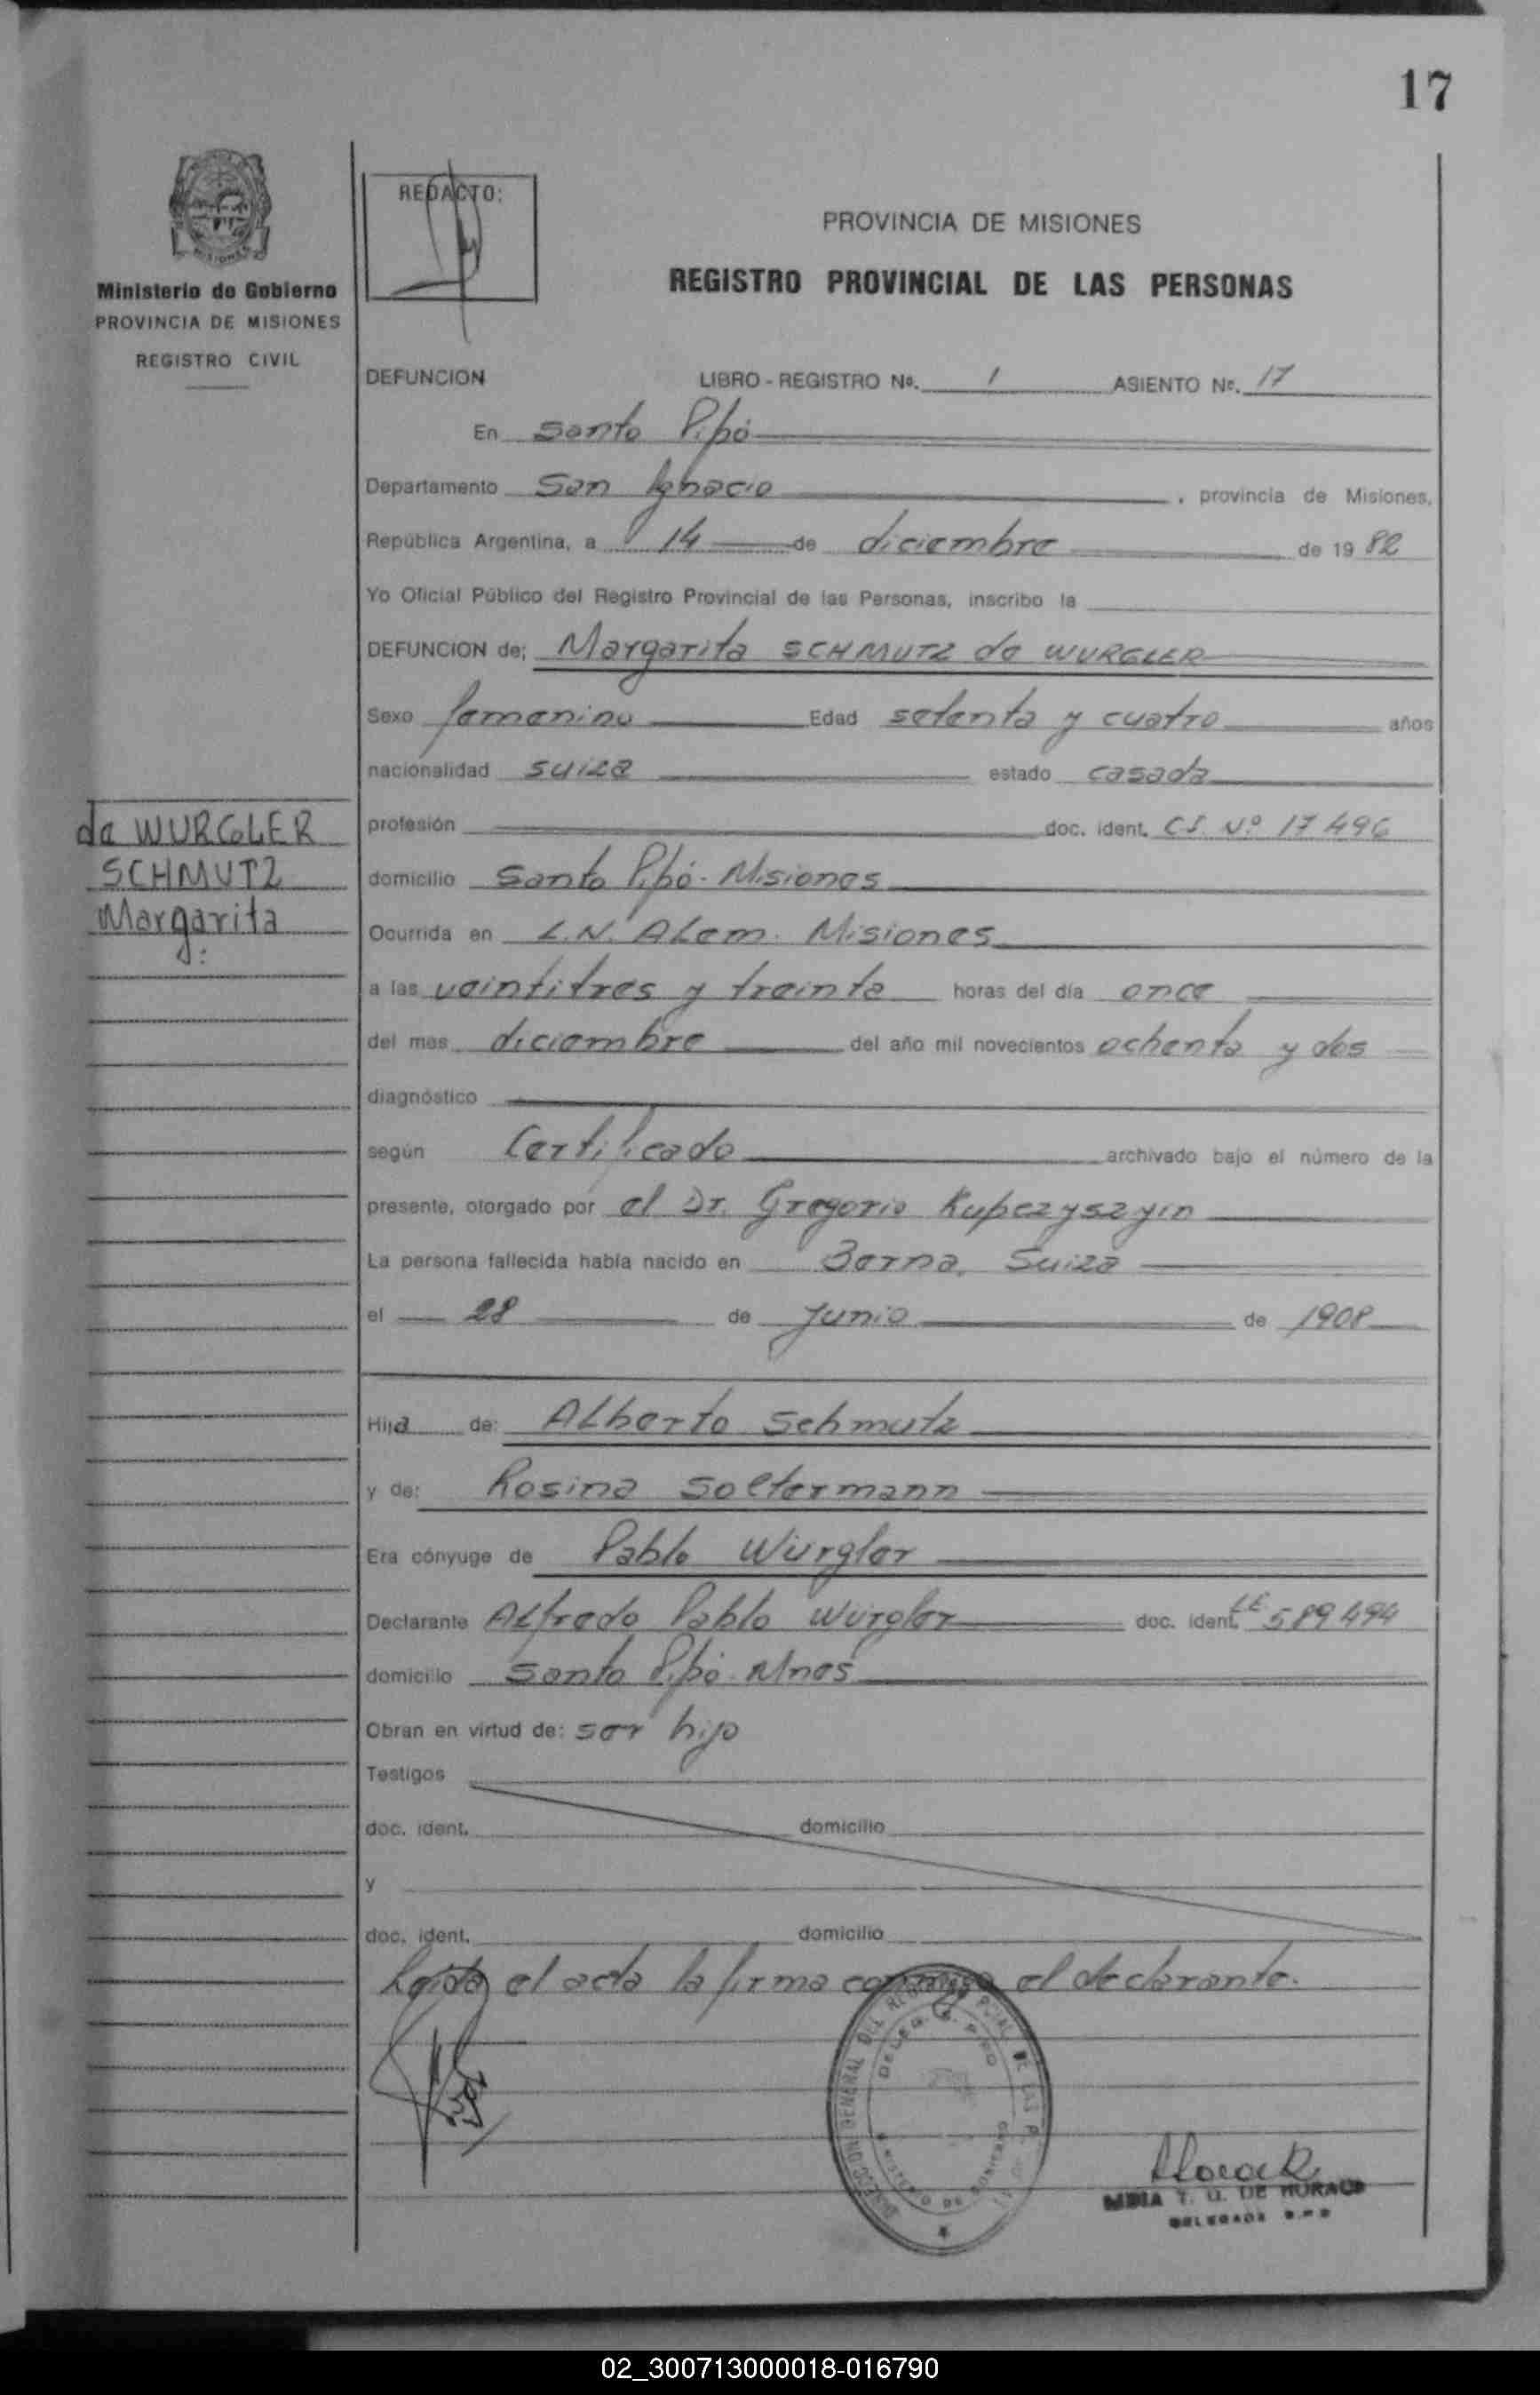 17
REDACTO:
PROVINCIA DE MISIONES
REGISTRO PROVINCIAL DE LAS PERSONAS
MISIONES
Ministerio de Gobierno
PROVINCIA DE MISIONES
REGISTRO CIVIL
DEFUNCION LIBRO - REGISTRO No. 1 ASIENTO No. 17
En Santo Pipó
Departamento San Ignacio, provincia de Misiones,
República Argentina, a 14 de diciembre de 19 82
Yo Oficial Público del Registro Provincial de las Personas, inscribo la
DEFUNCION de; Margarita SCHMUTZ de WURGLER
Sexo femenino Edad setenta y cuatro años
nacionalidad suiza estado casada
de WURGLER
SCHMUTZ
Margarita
profesión doc. ident. C.I. Nº 17496
domicilio Santo Pipó - Misiones
Ocurrida en L.N. ALem. Misiones
a las veintitres y treinta horas del día once
del mes diciembre del año mil novecientos ochenta y dos
diagnóstico
según Certificado archivado bajo el número de la
presente, otorgado por el Dr. Gregorio Kupczyszyin
La persona fallecida había nacido en Berna, Suiza
el 28 de Junio de 1908
Hija de: ALberto Schmutz
y de: Rosina Soltermann
Era cónyuge de Pablo Würgler
Declarante ALfredo Pablo Würgler doc. ident. LE 589494
domicilio Santo Pipó - Mnes
Obran en virtud de: ser hijo
Testigos
doc. ident. domicilio
y
doc. ident. domicilio
Leida el acta la firma conmigo el declarante.
DIRECCION GENERAL DEL REGISTRO PCIAL DE LAS P.
DELEG. S. PIPO
MINISTERIO DE GOBIERNO
T. U. DE
DELEGADA
02_300713000018-016790